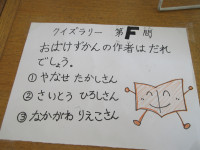 クイズラリー 第F問
おばけずかんの作者はだれ
でしょう。
① やなせ たかしさん
② さいとう ひろしさん
③ なかがわ りえこさん